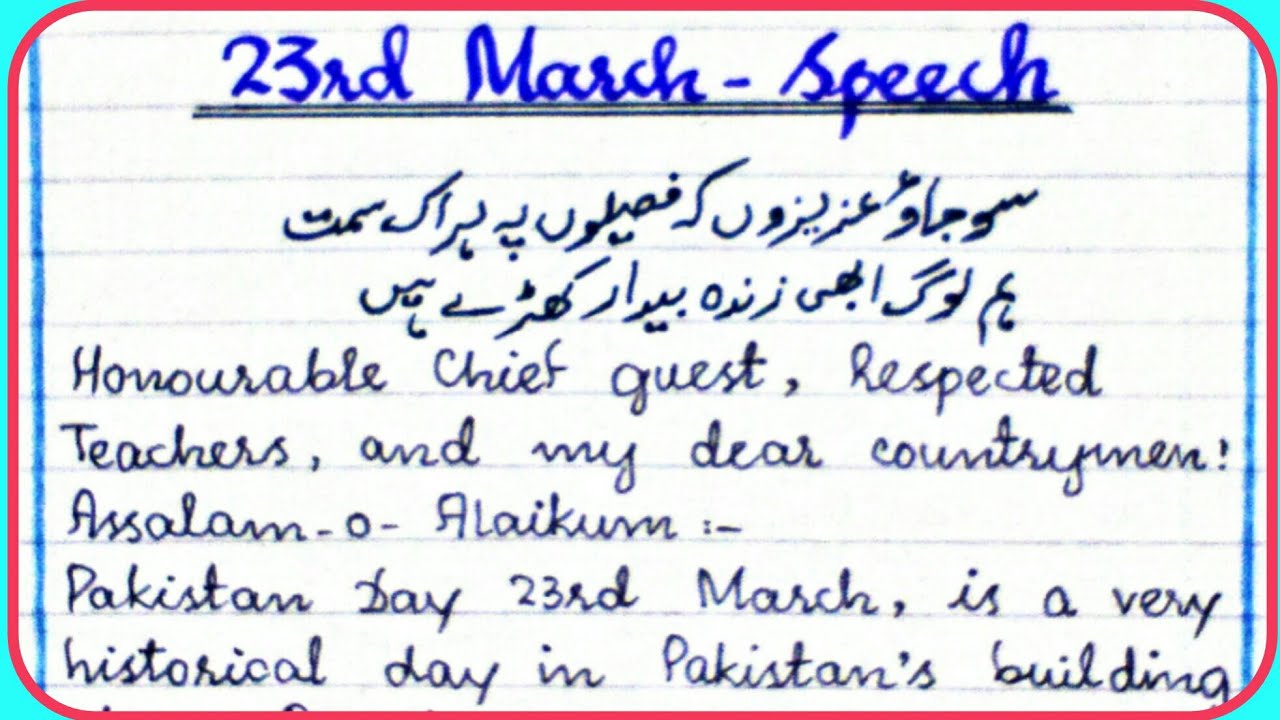 23rd March - Speech
سو جاؤ عزیزوں کہ فصیلوں پہ ہر اک سمت
ہم لوگ ابھی زندہ بیدار کھڑے ہیں
Honourable Chief guest, Respected
Teachers, and my dear countrymen!
Assalam-o-Alaikum :-
Pakistan Day 23rd March, is a very
historical day in Pakistan's building